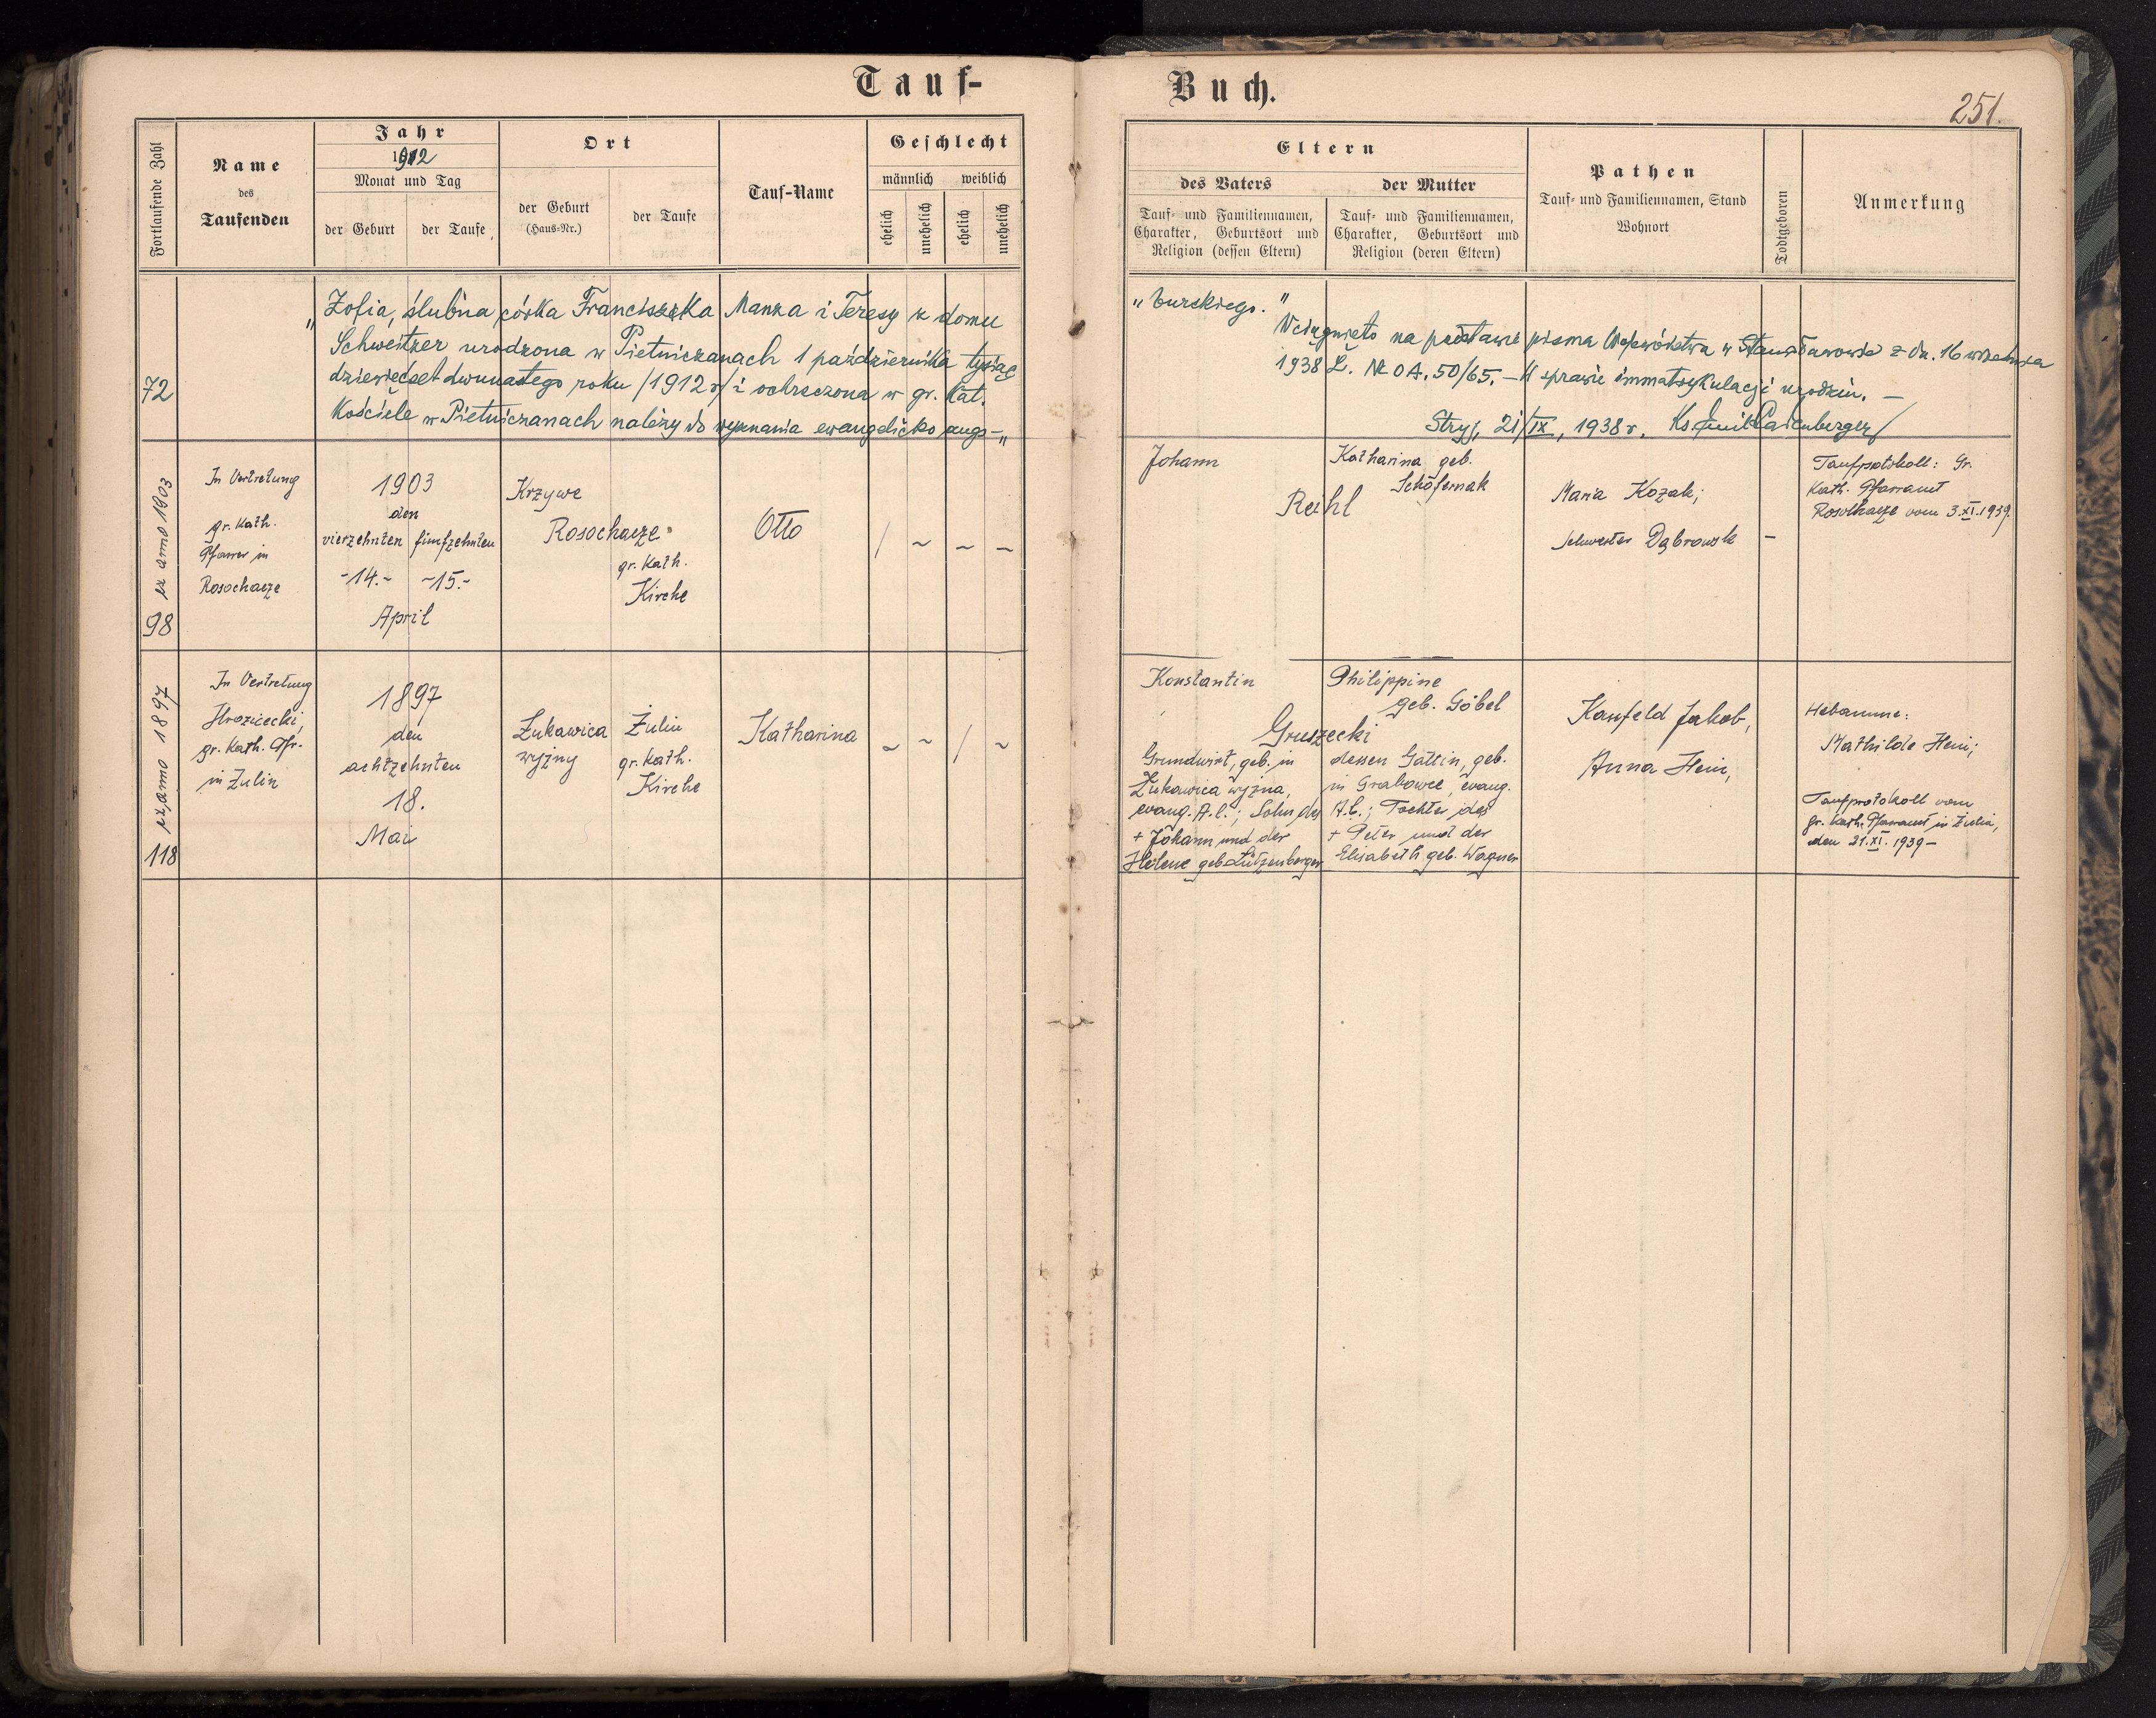 Tauf-
Buch.
251.
Fortlaufende Zahl
Name
des
Taufenden
Jahr
1912
Monat und Tag
der Geburt
der Taufe
Ort
der Geburt
(Haus-Nr.)
der Taufe
Tauf-Name
Geschlecht
männlich weiblich
ehelich
unehelich
ehelich
unehelich
Eltern
des Vaters
Tauf- und Familiennamen,
Charakter, Geburtsort und
Religion (dessen Eltern)
der Mutter
Tauf- und Familiennamen,
Charakter, Geburtsort und
Religion (deren Eltern)
Pathen
Tauf- und Familiennamen, Stand
Wohnort
Todtgeboren
Anmerkung
72
„Zofia, ślubna córka Franciszka Manza i Teresy z domu
Schweitzer urodzona w Pietniczanach 1 października tysiąc
dziewięćset dwunastego roku /1912 r/ i ochrzczona w gr. kat.
Kościele w Pietniczanach należy do wyznania ewangelicko augs-„
„burskiego."
Wciągnięto na podstawie pisma Województwa w Stanisławowie z dn. 16 września
1938 L. № OA. 50/65. – W sprawie immatrykulacji urodzin. –
Stryj, 21/IX, 1938 r. Ks. Emil Ladenberger/
98 ex anno 1903
In Vertretung
gr. Kath.
Pfarrer in
Rosochacze
1903
den
vierzehnten fünfzehnten
-14.- -15.-
April
Krzywe
Rosochacze
gr. Kath.
Kirche
Otto
/ ~ – –
Johann
Katharina geb.
Schöfernak
Reihl
Maria Kozak;
Schwester Dąbrowsk
–
Taufprotokoll: Gr.
Kath. Pfarramt
Rosochacze vom 3.XI.1939.
118 ex anno 1897
In Vertretung
gr. Kath. Pfr.
in Żulin
1897
den
achtzehnten
18.
Mai
Łukawica
wyżny
Żulin
gr. Kath.
Kirche
Katharina
~ ~ / ~
Konstantin
Philippine
geb. Göbel
Gruszecki
Grundwirt, geb. in
Łukawica wyżna,
evang. A.C.; Sohn des
+ Johann und der
Helene geb. Lützenberger
dessen Gattin, geb.
in Grabowce, evang.
A.C.; Tochter des
+ Peter und der
Elisabeth geb. Wagner
Kanfeld Jakob,
Anna Hein,
Hebamme:
Mathilde Hein;
Taufprotokoll vom
gr. Kath. Pfarramt in Żulin,
den 21.XI.1939–